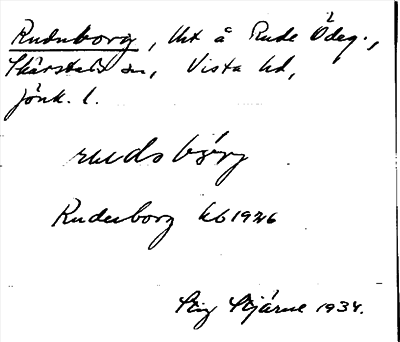 Ruduborg, Uht å Rude Ödeg.,
Skärstads sn, Vista hd,
Jönk. l.
rudsbórg
Rudenborg kb 1926
Stig Stjärne 1934.